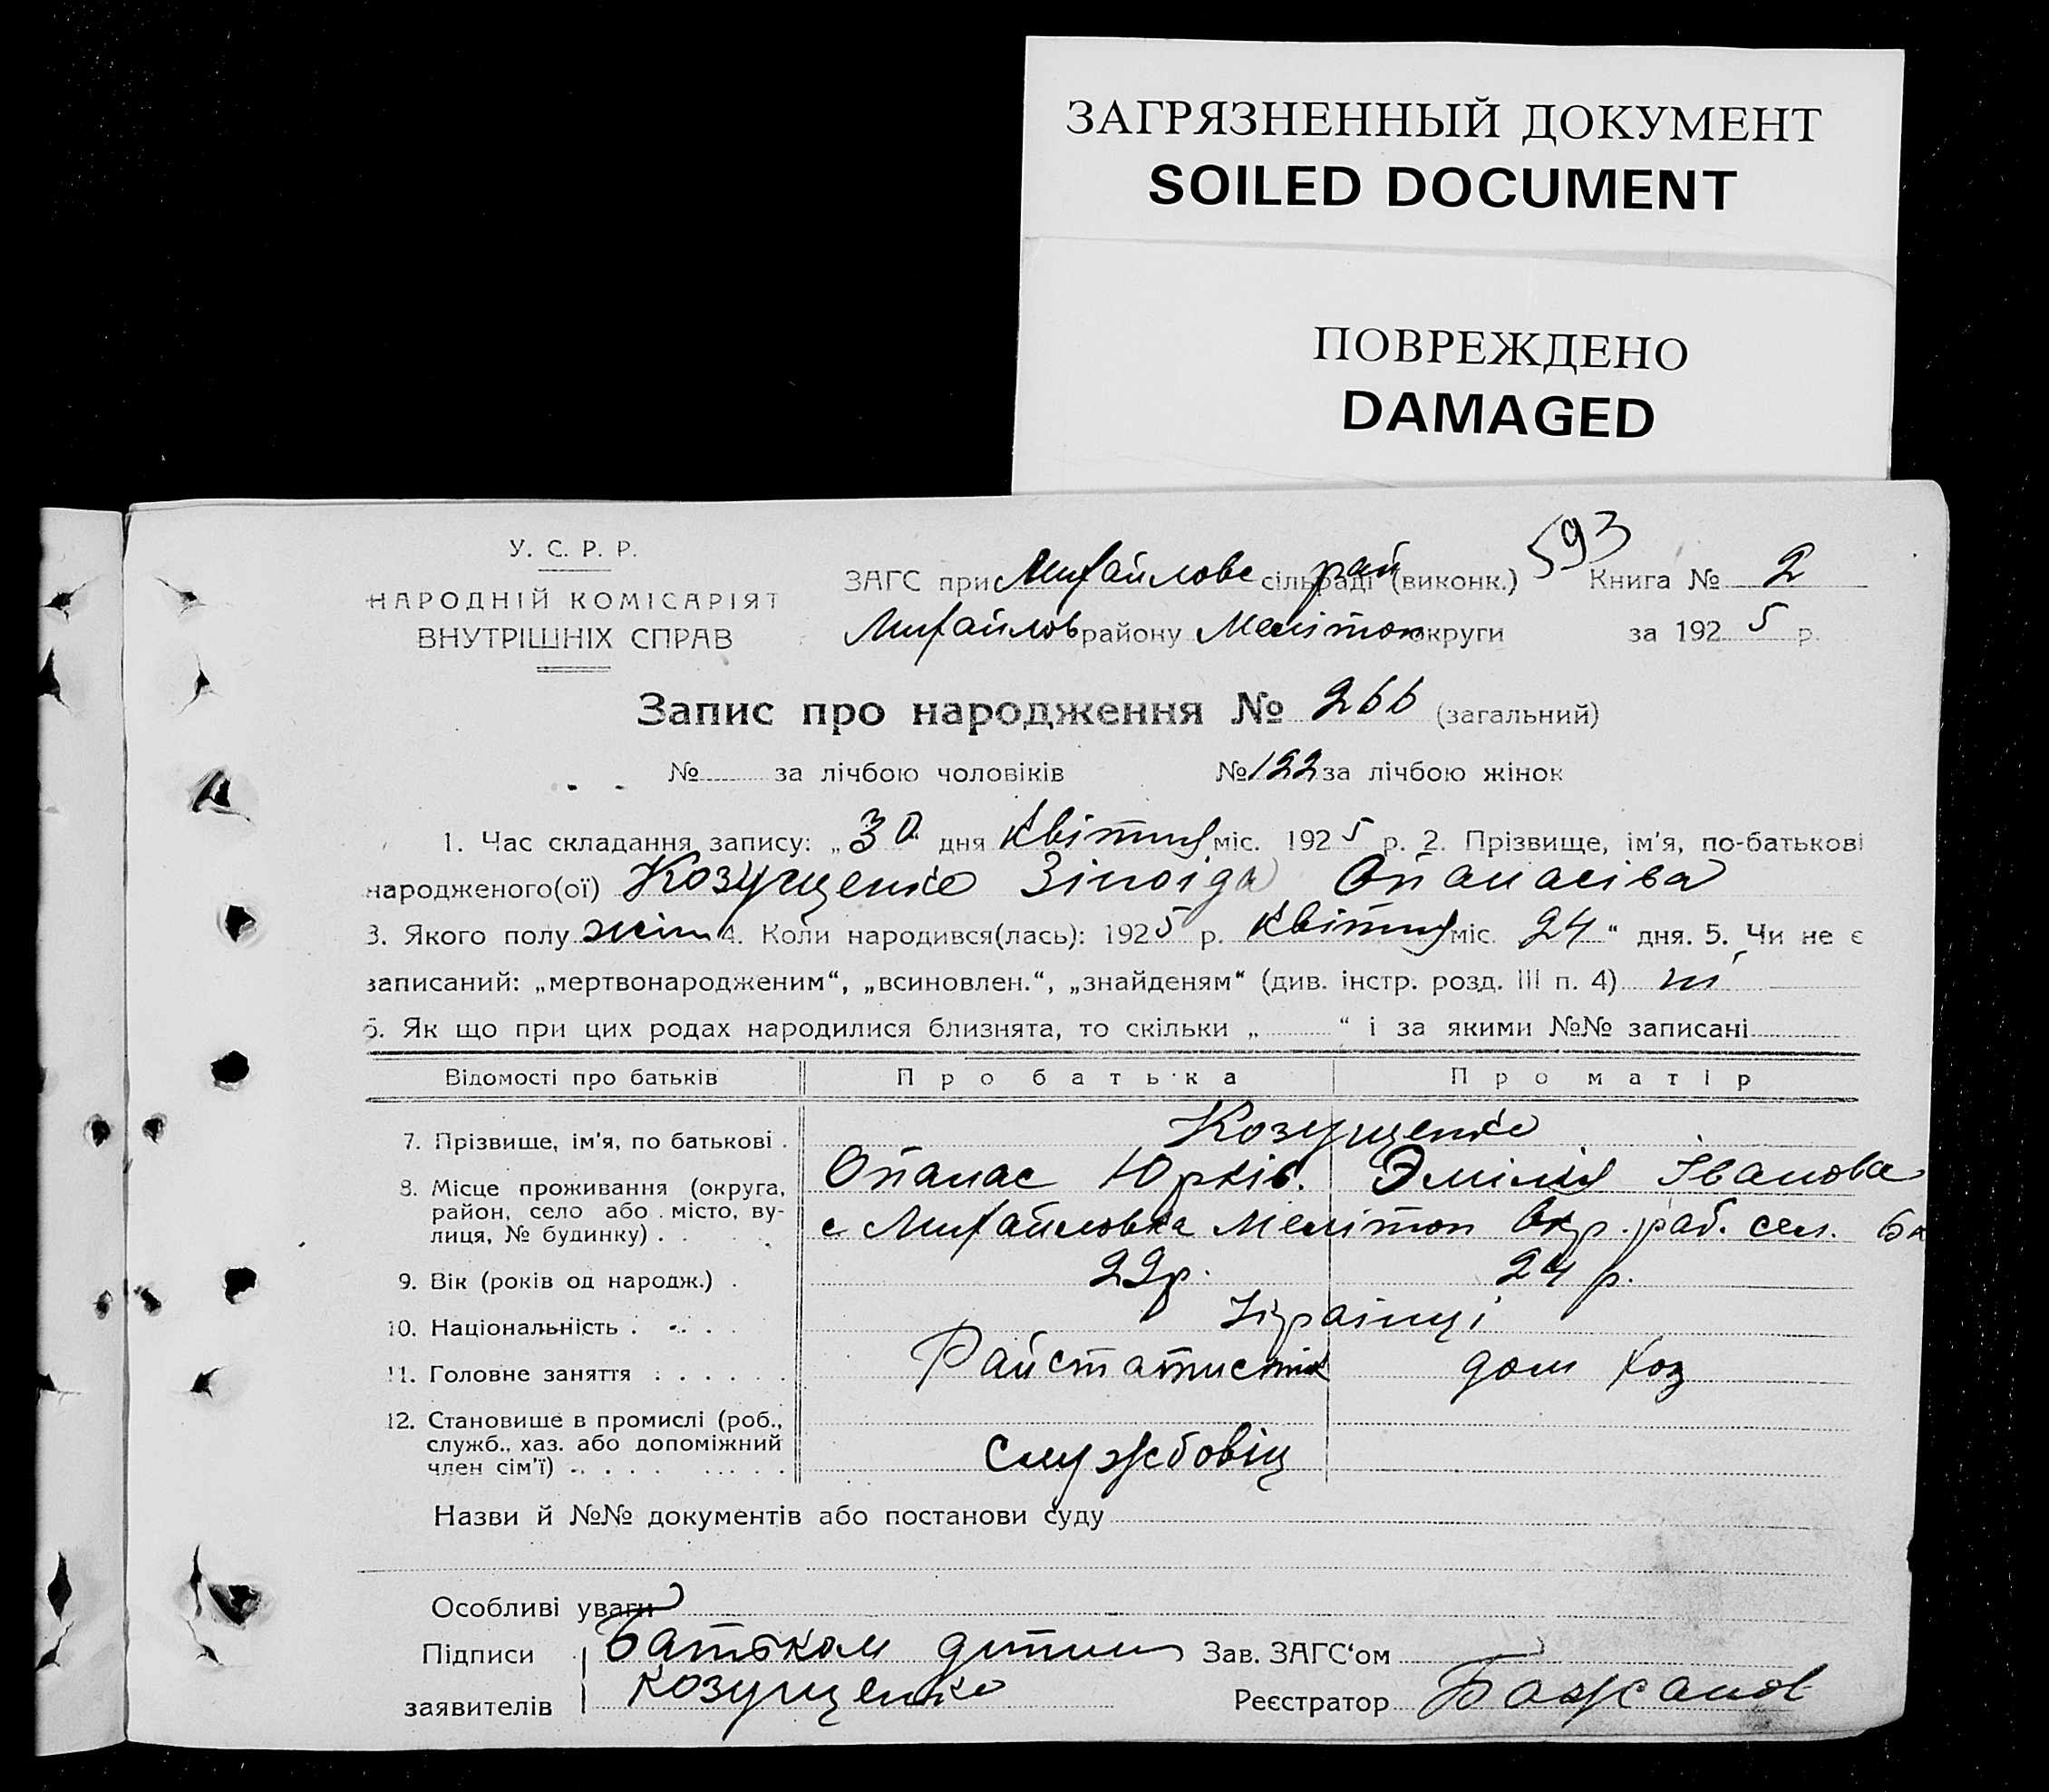 ЗАГРЯЗНЕННЫЙ ДОКУМЕНТ
SOILED DOCUMENT
ПОВРЕЖДЕНО
DAMAGED
593
У. С. Р. Р.
НАРОДНІЙ КОМІСАРІЯТ
ВНУТРІШНІХ СПРАВ
ЗАГС при Михайлове сільраді рай (виконк.) Книга № 2
Михайлов району Мелітоп округи за 192 5 р.
Запис про народження № 266 (загальний)
№ за лічбою чоловіків № 122 за лічбою жінок
1. Час складання запису: „30" дня Квітня міс. 192 5 р. 2. Прізвище, ім'я, по-батькові
народженого(ої) Козущенко Зіноіда Опанасіва
3. Якого полу жін 4. Коли народився(лась): 192 5 р. Квітня міс. 24 " дня. 5. Чи не є
записаний: „мертвонародженим", „всиновлен.", „знайденям" (див. інстр. розд. III п. 4) ні
6. Як що при цих родах народилися близнята, то скільки „ " і за якими №№ записані
Відомості про батьків Про батька Про матір
7. Прізвище, ім'я, по батькові . Козущенко
Опанас Юрків. Эмілія Іванова
8. Місце проживання (округа,
район, село або місто, ву-
лиця, № будинку) . с Михайловка Мелітоп Окр. раб. сел.
9. Вік (років од народж.) . 22р. 24 р.
10. Національність . Українці
11. Головне заняття : Райстатистик дом хоз
12. Становище в промислі (роб.,
служб., хаз. або допоміжний
член сім'ї) Службовіц
Назви й №№ документів або постанови суду
Особливі уваги
Підписи Батьком дитини Зав. ЗАГС'ом
заявителів Козущенко Реєстратор Бажанов